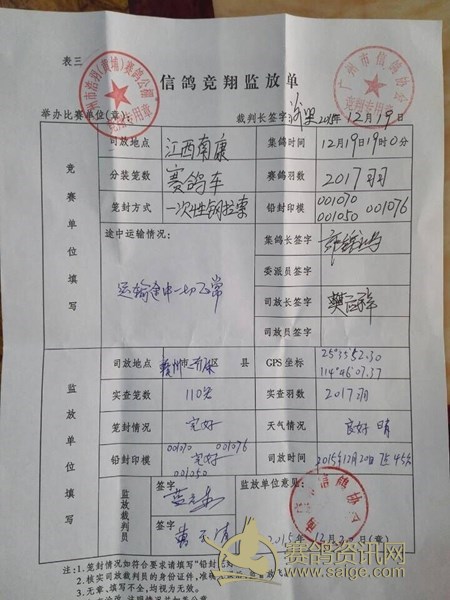 表三
信鸽竞翔监放单
举办比赛单位(章): 裁判长签字: 2015年12月19日
竞赛单位填写
司放地点 江西南康 集鸽时间 12月19日19时0分
分装笼数 赛鸽车 赛鸽羽数 2017羽
笼封方式 一次性钢丝束 铅封印模 001070 001050 001076
途中运输情况: 运输途中一切正常
集鸽长签字
委派员签字
司放长签字
司放员签字
监放单位填写
司放地点 赣州市南康区 县 GPS坐标 25°35'52.30 114°46'07.37
实查笼数 110笼 实查羽数 2017羽
笼封情况 完好 天气情况 良好 晴
铅封印模 001070 001076 完好 001050 司放时间 2015年12月20日7时45分
监放裁判员 签字 签字
监放单位意见:
2015年12月20日(章)
注:1.笼封情况如符合要求请填写"铅封
2.核实司放裁判员的身份证件,准
3.无章、填写不全,均视为无效。
赛鸽资讯网
www.saigc.com